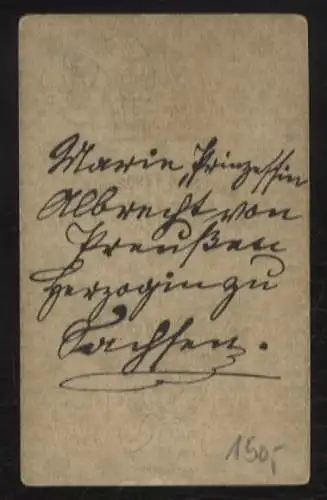 Marie, Prinzessin
Albrecht von
Preußen
Herzogin zu
Sachsen.
150,-